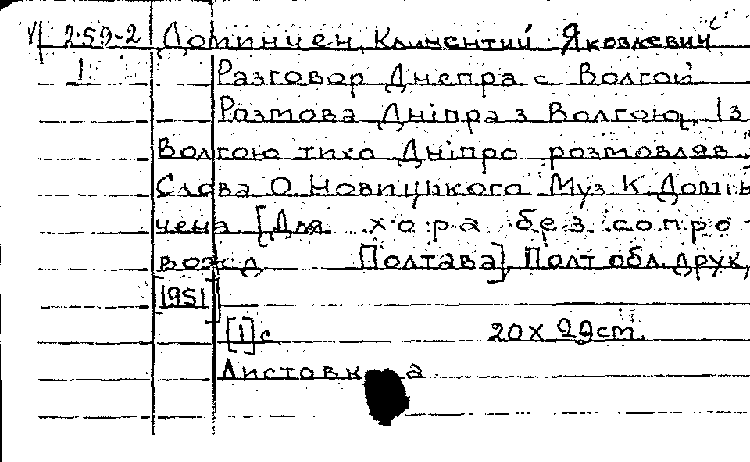 V 2·59-2 Доминчен, Климентий Яковлевич
1 Разговор Днепра с Волгой
Розмова Дніпра з Волгою. Із
Волгою тихо Дніпро розмовляв
Слова О. Новицького Муз. К. Домін
чена [Для хора без сопро-
вожд Полтава], Полт обл. друк,
[1951]
[1] с 20 х 29 см.
Листовка